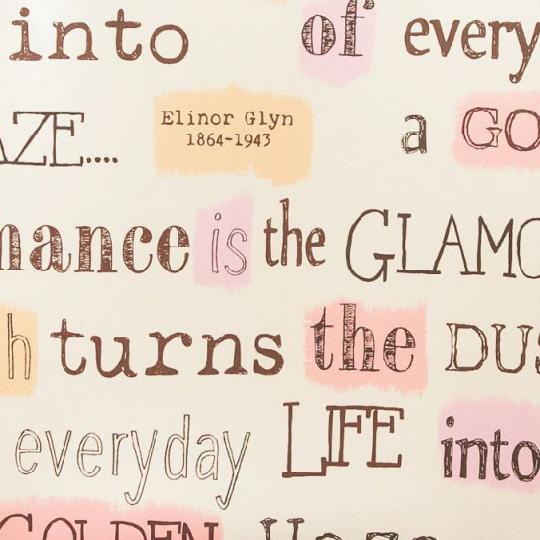 into of every
AZE.... Elinor Glyn a GO
1864-1943
mance is the GLAMO
h turns the DUS
everyday LIFE into
GOLDEN Haze